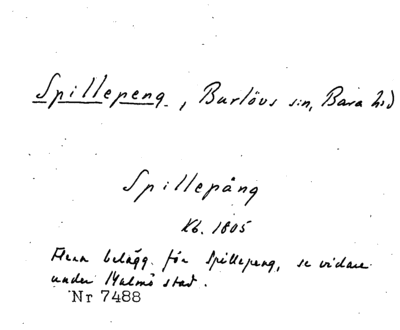 Spillepeng, Burlövs sn, Bara hd
Spillepång
Kb. 1805
Flera belägg för Spillepeng, se vidare
under Malmö stad.
Nr 7488